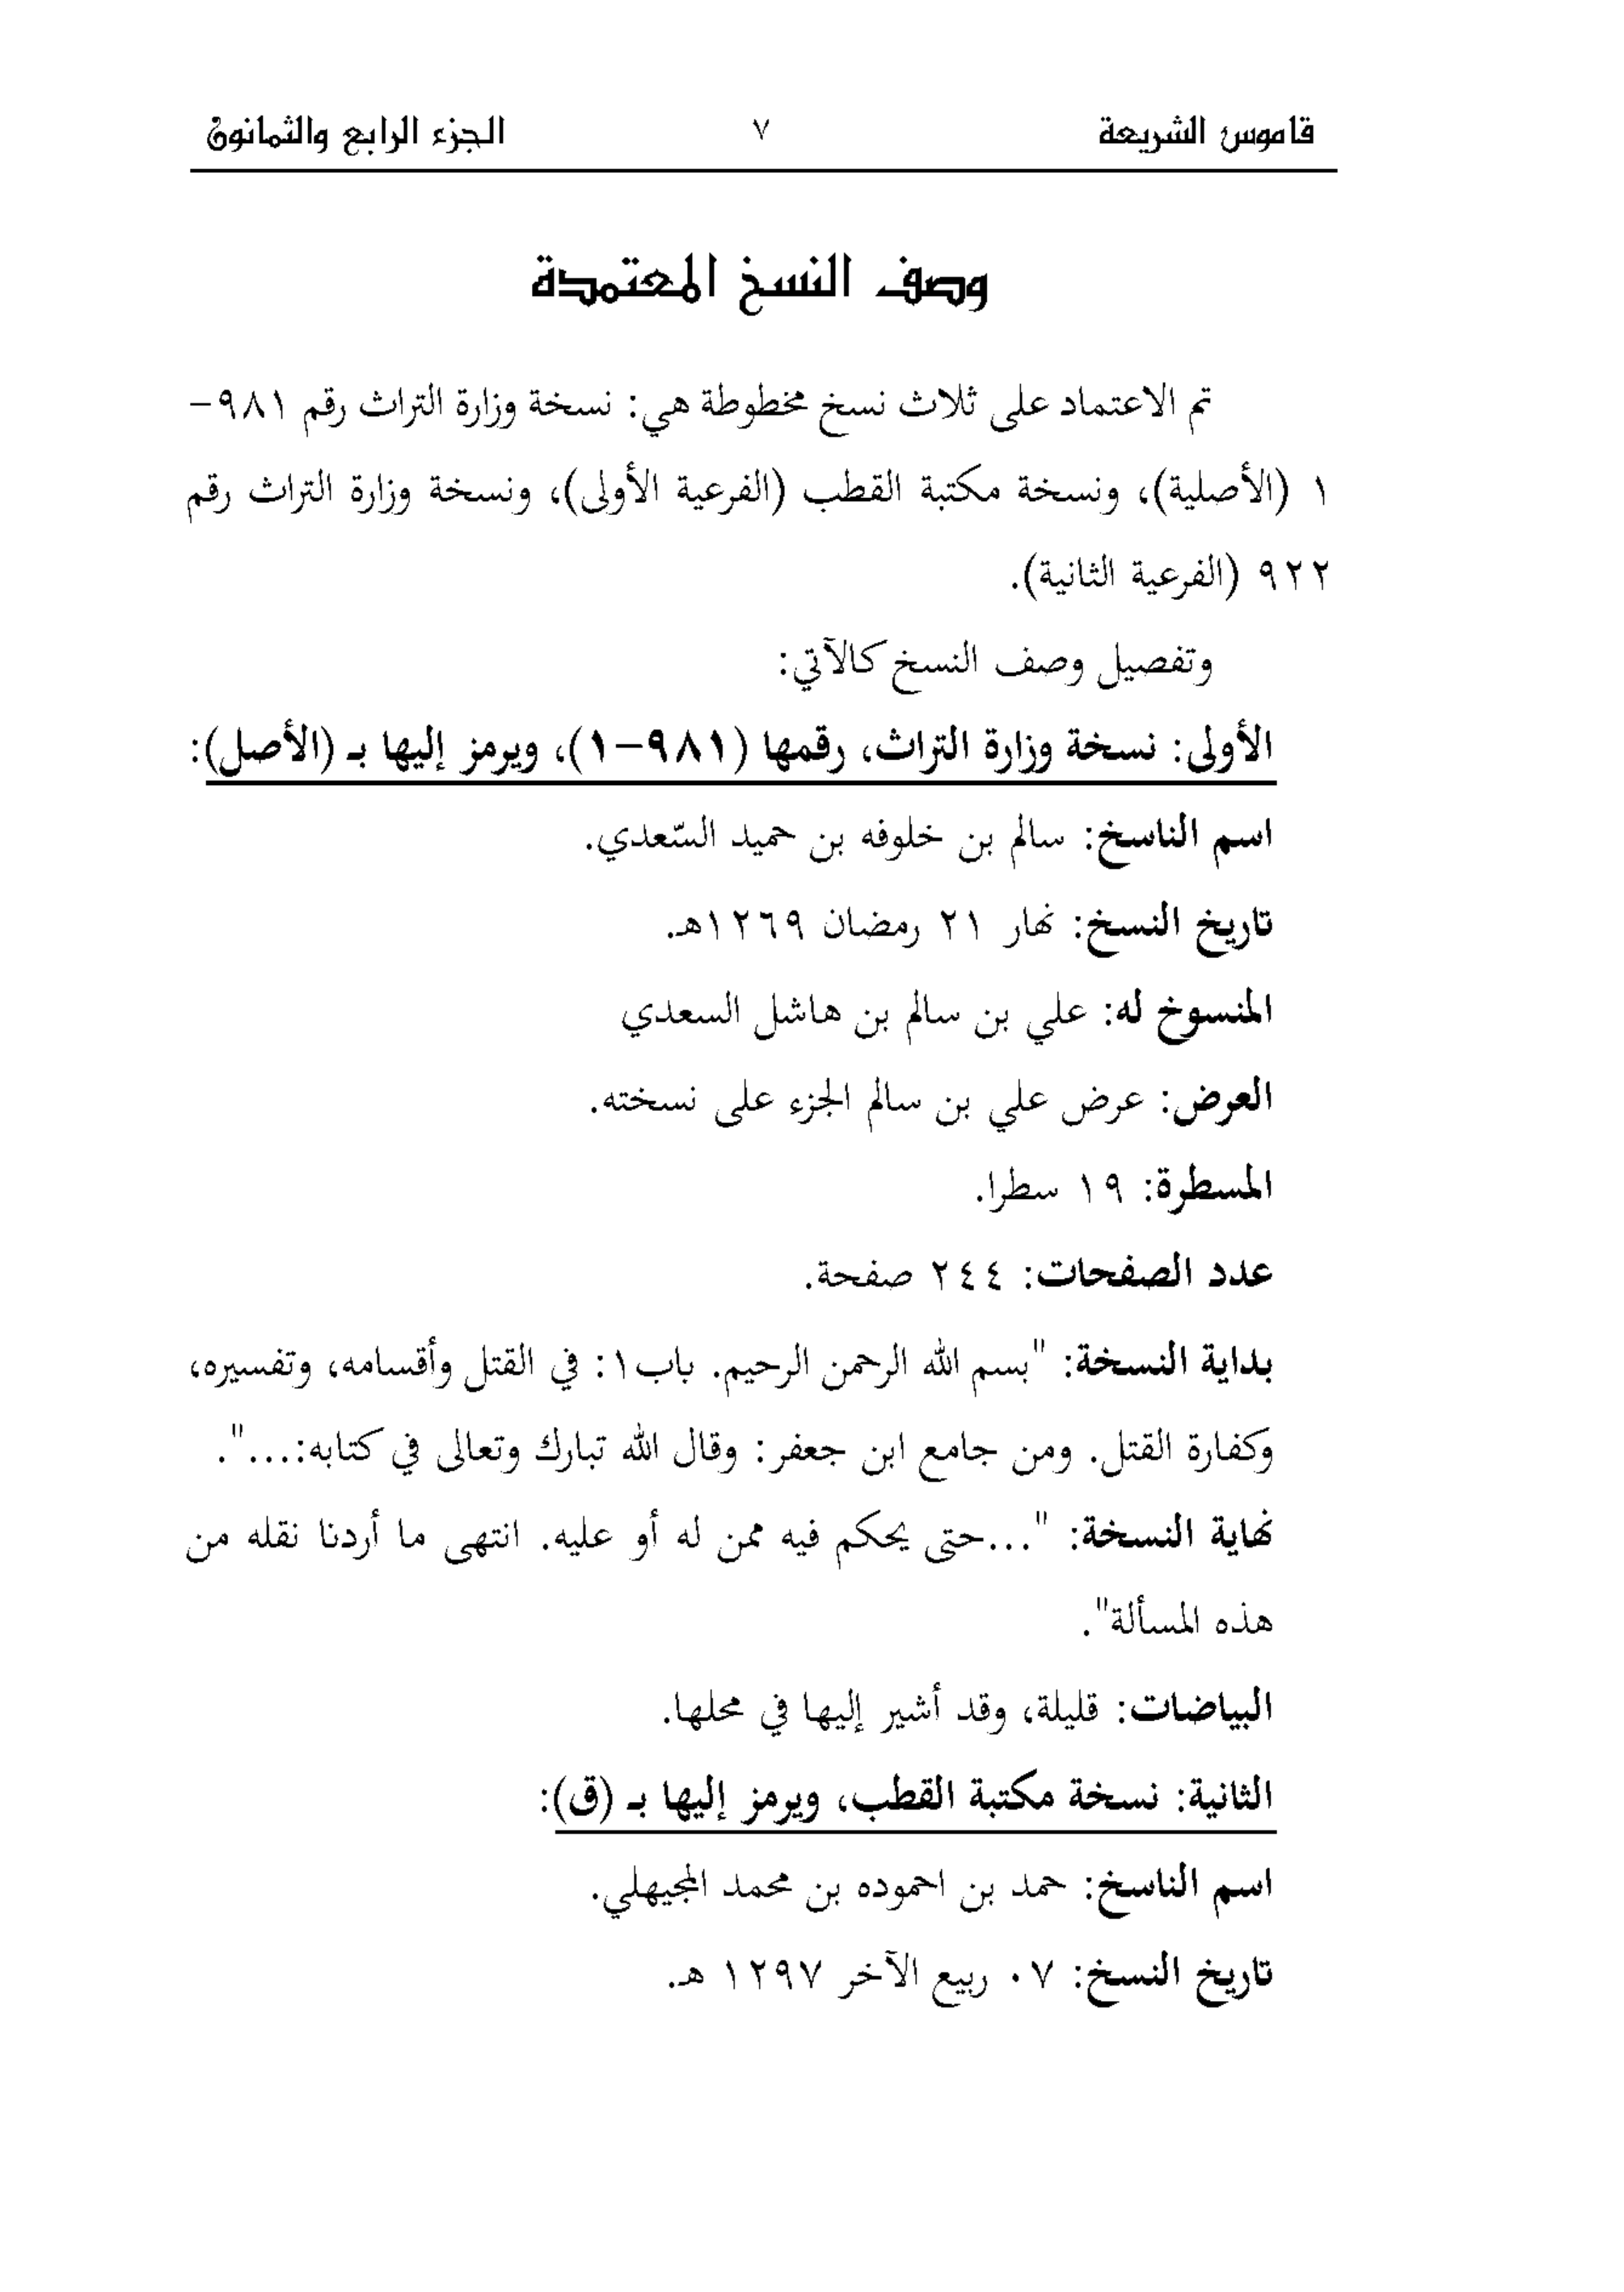 قاموس الشريعة ٧ الجزء الرابع والثمانون
وصف النسخ المعتمدة
تم الاعتماد على ثلاث نسخ مخطوطة هي: نسخة وزارة التراث رقم ٩٨١-
١ (الأصلية)، ونسخة مكتبة القطب (الفرعية الأولى)، ونسخة وزارة التراث رقم
٩٢٢ (الفرعية الثانية).
وتفصيل وصف النسخ كالآتي:
الأولى: نسخة وزارة التراث، رقمها (٩٨١-١)، ويرمز إليها بـ (الأصل):
اسم الناسخ: سالم بن خلوفه بن حميد السّعدي.
تاريخ النسخ: نهار ٢١ رمضان ١٢٦٩هـ.
المنسوخ له: علي بن سالم بن هاشل السعدي
العرض: عرض علي بن سالم الجزء على نسخته.
المسطرة: ١٩ سطرا.
عدد الصفحات: ٢٤٤ صفحة.
بداية النسخة: "بسم الله الرحمن الرحيم. باب١: في القتل وأقسامه، وتفسيره،
وكفارة القتل. ومن جامع ابن جعفر: وقال الله تبارك وتعالى في كتابه:...".
نهاية النسخة: "...حتى يحكم فيه ممن له أو عليه. انتهى ما أردنا نقله من
هذه المسألة".
البياضات: قليلة، وقد أشير إليها في محلها.
الثانية: نسخة مكتبة القطب، ويرمز إليها بـ (ق):
اسم الناسخ: حمد بن احموده بن محمد المجيهلي.
تاريخ النسخ: ٠٧ ربيع الآخر ١٢٩٧ هـ.